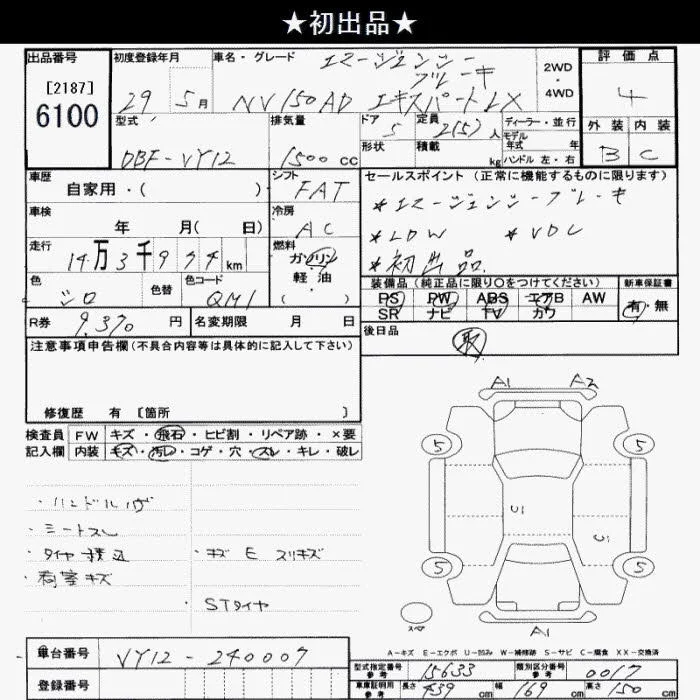 ★初出品★
出品番号 初度登録年月 車名・グレード エマージェンシー ブレーキ 評価点
[2187] 6100 29 5月 NV150AD エキスパートLX 2WD・4WD 4
型式 排気量 ドア 定員 ディーラー・並行 外装 内装
DBF-VY12 1500cc 5 2(5)人 モデル年式 年 B C
形状 積載 kg ハンドル 左・右
車歴 自家用・( ) シフト FAT セールスポイント(正常に機能するものに限ります)
車検 年 月( 日) 冷房 AC *エマージェンシーブレーキ
*LDW *VDC
走行 14万3千9 km 燃料 ガソリン 軽・油 ( ) *初出品.
色 シロ 色替 色コード QM1 装備品(純正品に限り○をつけてください) 新車保証書
PS PW ABS エアB AW 有・無
SR ナビ TV カワ
R券 9,370円 名変期限 月 日 後日品
取
注意事項申告欄(不具合内容等は具体的に記入して下さい)
修復歴 有 [箇所 ]
検査員 FW キズ・飛石・ヒビ割・リペア跡・×要
記入欄 内装 キズ・汚レ・コゲ・穴・スレ・キレ・破レ
A1 A2
5 5
・シートスレ
・タイヤ積込 ・キズ E スリキズ
・荷室キズ
・STタイヤ
U
5 5
スペア
A1
A-キズ E-エクボ U-凹み W-補修跡 S-サビ C-腐食 XX-交換済
車台番号 VY12-240007
型式指定番号 参考 15633 類別区分番号 参考 0017
登録番号 車庫証明用 参考 長さ 439cm 幅 169cm 高さ 150cm